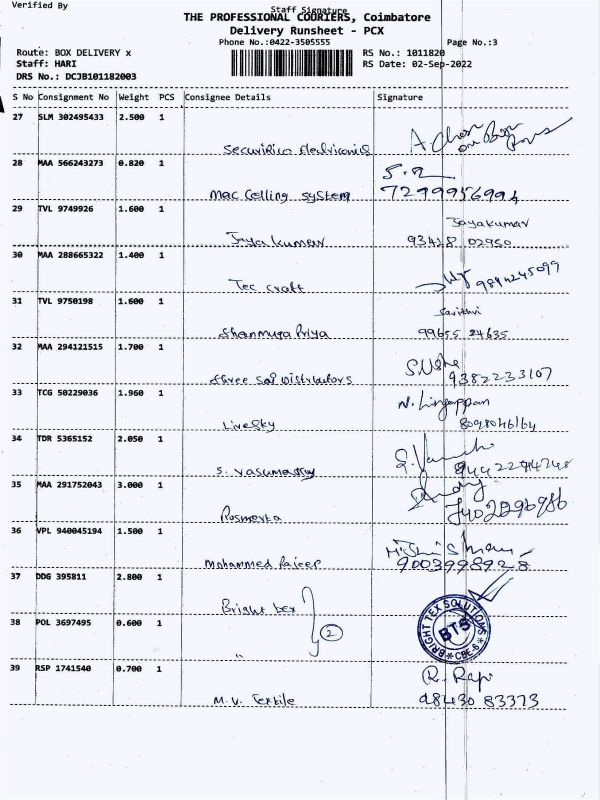 Verified By
Staff Signature
THE PROFESSIONAL COURIERS, Coimbatore
Delivery Runsheet - PCX
Phone No.:0422-3505555
Page No.:3
Route: BOX DELIVERY x
RS No.: 1011820
Staff: HARI
RS Date: 02-Sep-2022
DRS No.: DCJB101182003
S No Consignment No Weight PCS Consignee Details Signature
27 SLM 302495433 2.500 1
28 MAA 566243273 0.820 1
Mac Celling system 7299956994
29 TVL 9749926 1.600 1
Jayakumar
Jayakumar 93428 02950
30 MAA 288665322 1.400 1
Tec craft 9894245099
31 TVL 9750198 1.600 1
Savithri
Shanmuga Priya 99655 24635
32 MAA 294121515 1.700 1
S.Usha
Shree Sai Distributors 9382233107
33 TCG 50229036 1.960 1
N. Lingappan
Livesky 8098046164
34 TDR 5365152 2.050 1
S. Vasumathy
35 MAA 291752043 3.000 1
Rosmerta
36 VPL 940045194 1.500 1
9003998928
37 DDG 395811 2.800 1
Bright tex
38 POL 3697495 0.600 1
2
"
BRIGHT TEX SOLUTIONS
BTS
* CBE-6 *
39 RSP 1741540 0.700 1
M.V. Textile 98430 83373